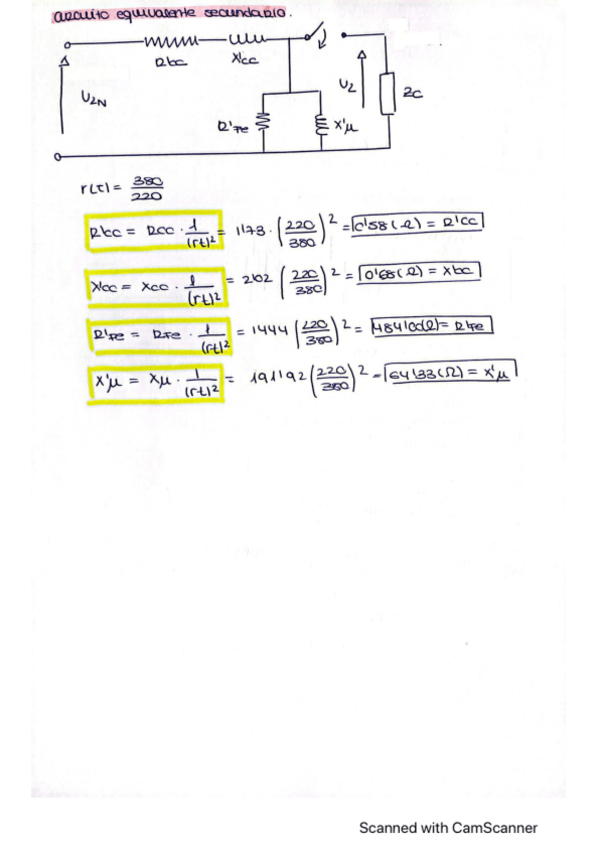 circuito equivalente secundario.
R'cc X'cc
U2N
R'Fe X'μ
U2 Zc
r(t) = 380/220
R'cc = Rcc · 1/(rt)² = 1'73 · (220/380)² = 0'58(Ω) = R'cc
X'cc = Xcc · 1/(rt)² = 2'02 (220/380)² = 0'68(Ω) = X'cc
R'Fe = RFe · 1/(rt)² = 1444 (220/380)² = 484'00(Ω) = R'Fe
X'μ = Xμ · 1/(rt)² = 191'92 (220/380)² = 64'33(Ω) = X'μ
Scanned with CamScanner